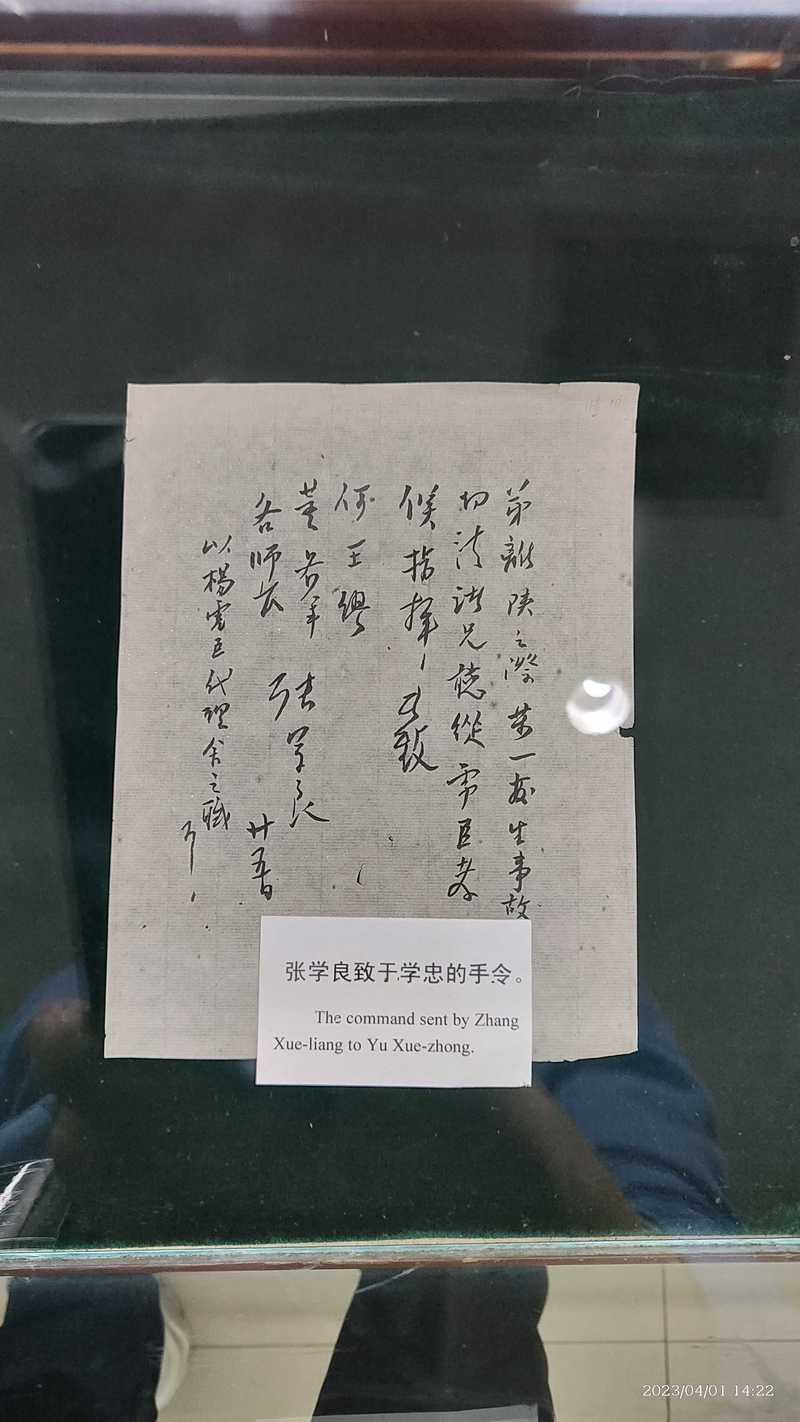 弟離陝之際萬一發生事故
切請諸兄聽從虎臣孝
侯指揮，此致
何王繆
董各軍
各師長
張學良
廿五日
以楊虎臣代理余之職
张学良致于学忠的手令。
The command sent by Zhang
Xue-liang to Yu Xue-zhong.
2023/04/01 14:22